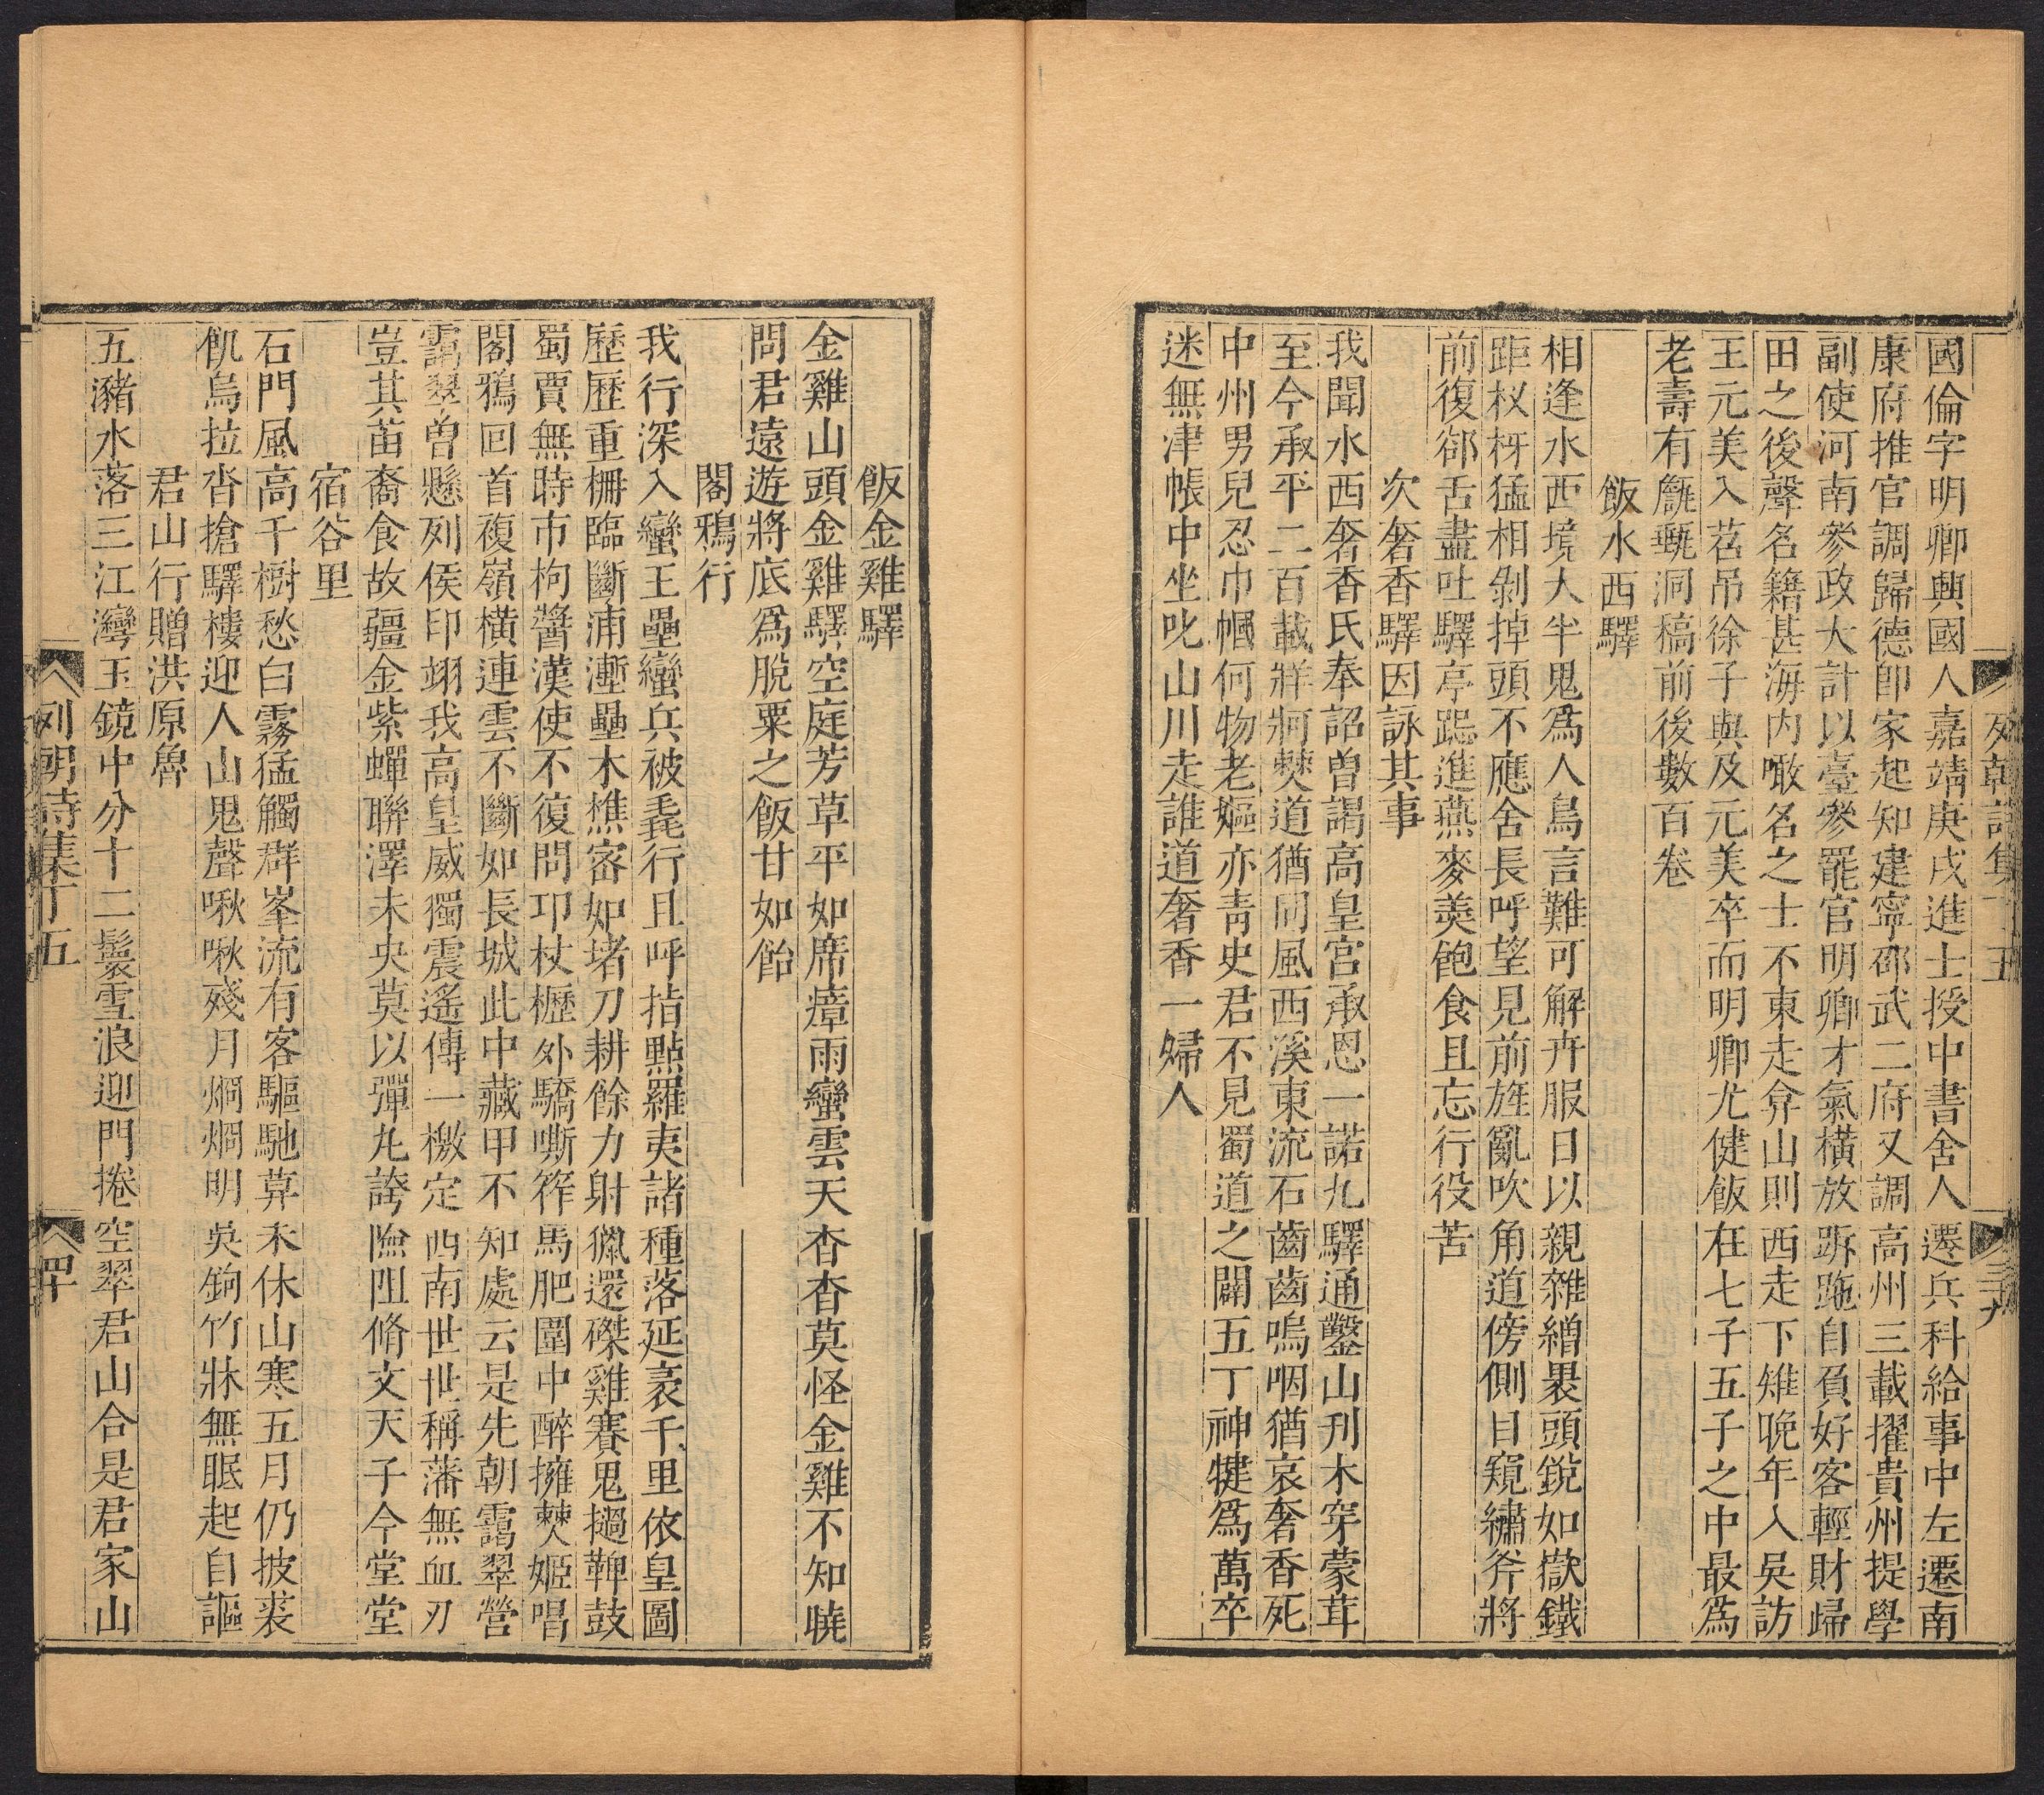 列朝詩集丁五
三十九
國倫字明卿興國人嘉靖庚戌進士授中書舍人遷兵科給事中左遷南
康府推官調歸德卽家起知建寧邵武二府又調高州三載擢貴州提學
副使河南參政大計以臺參罷官明卿才氣橫放跅跑自負好客輕財歸
田之後聲名籍甚海內噉名之士不東走弇山則西走下雉晚年入吳訪
王元美入茗吊徐子與及元美卒而明卿尤健飯在七子五子之中最爲
老壽有甔甀洞稿前後數百卷
飯水西驛
相逢水西境大半鬼爲人鳥言難可解卉服日以親雜繒裹頭銳如嶽鐵
距杈枒猛相剝掉頭不應舍長呼望見前旌亂吹角道傍側目窺繡斧將
前復郤舌盡吐驛亭跽進燕麥羹飽食且忘行役苦
次奢香驛因詠其事
我聞水西奢香氏奉詔曾謁高皇宮承恩一諾九驛通鑿山刋木穿蒙茸
至今承平二百載牂牁僰道猶同風西溪東流石齒齒嗚咽猶哀奢香死
中州男兒忍巾幗何物老嫗亦靑史君不見蜀道之闢五丁神犍爲萬卒
迷無津帳中坐叱山川走誰道奢香一婦人
飯金雞驛
金雞山頭金雞驛空庭芳草平如席瘴雨蠻雲天杳杳莫怪金雞不知曉
問君遠遊將底爲脫粟之飯甘如飴
閣鴉行
我行深入蠻王壘蠻兵被毳行且呼指點羅夷諸種落延袤千里依皇圖
歷歷重柵臨斷浦漸壘木樵密如堵刀耕餘力射獵還磔雞賽鬼撾鞞鼓
蜀賈無時市枸醬漢使不復問邛杖櫪外驕嘶筰馬肥圍中醉擁僰姬唱
閣鴉回首複嶺橫連雲不斷如長城此中藏甲不知處云是先朝靄翠營
靄翠曾懸列侯印翊我高皇威獨震遙傳一檄定西南世世稱藩無血刃
豈其苗裔食故疆金紫蟬聯澤未央莫以彈丸誇險阻脩文天子今堂堂
宿谷里
石門風高千樹愁白霧猛觸群峯流有客驅馳算未休山寒五月仍披裘
飢烏拉沓搶驛樓迎人山鬼聲啾啾殘月烱烱明吳鉤竹牀無眠起自謳
君山行贈洪原魯
五瀦水落三江灣玉鏡中分十二鬟雪浪迎門捲空翠君山合是君家山
列朝詩集丁五
四十